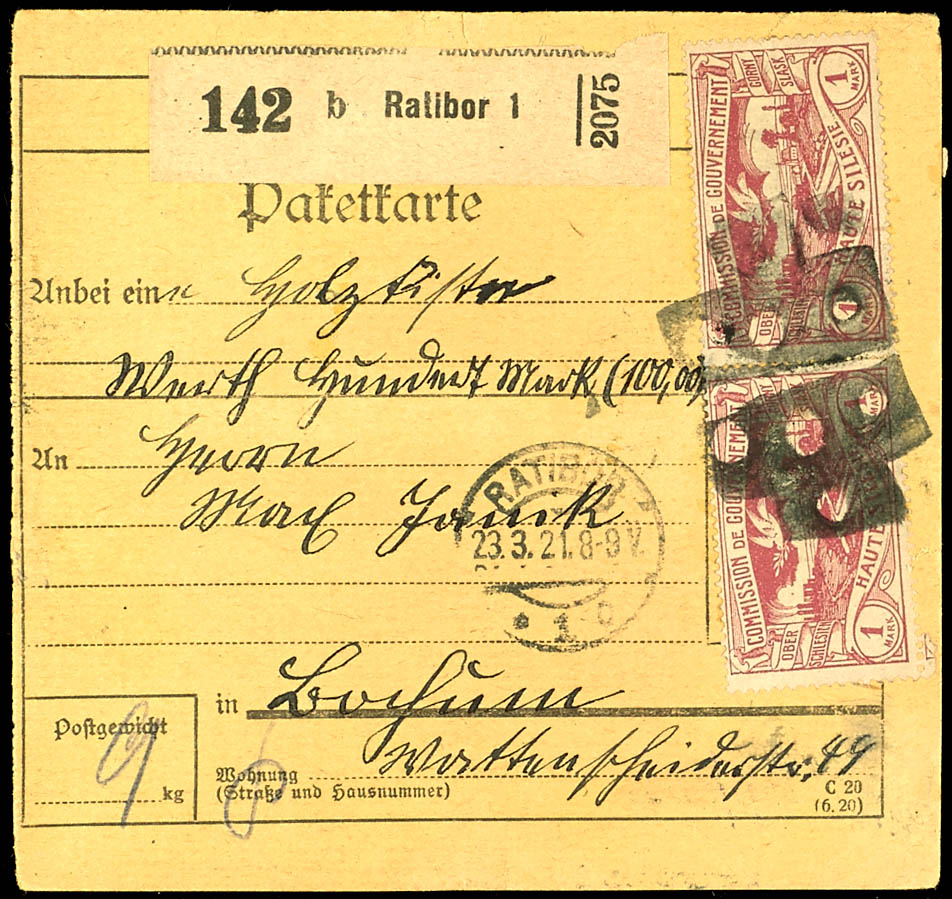 142 b Ratibor 1 2075
Paketkarte
Anbei eine Holzkiste
Werth Hundert Mark (100,00)
An Herrn
Max Janik
in Bochum
Wattenscheiderstr. 49
Wohnung
(Straße und Hausnummer)
Postgewicht
9
kg
C 20
(6.20)
RATIBOR
23.3.21.8-9V.
* 1 c
COMMISSION DE GOUVERNEMENT
HAUTE SILESIE
GORNY SLASK
OBER SCHLESIEN
1 MARK
1 MARK
COMMISSION DE GOUVERNEMENT
HAUTE
OBER SCHLESIEN
1 MARK
1 MARK